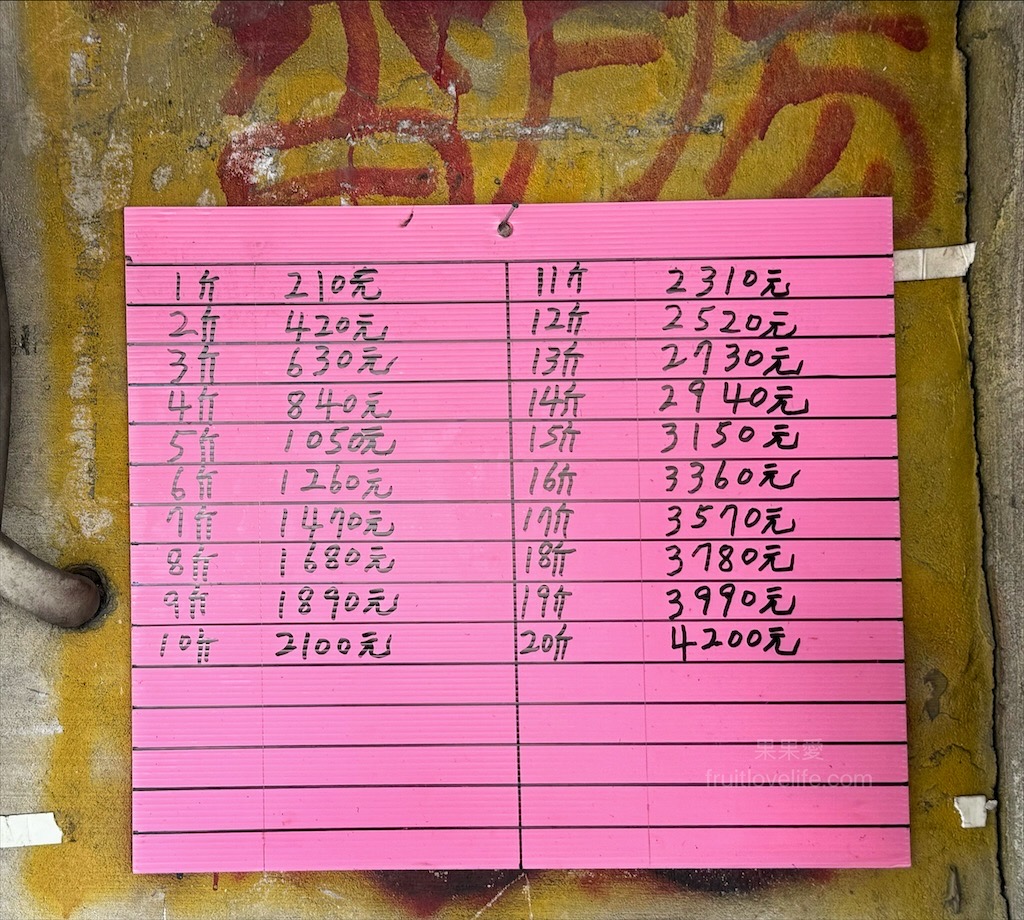 1斤 210元 11斤 2310元
2斤 420元 12斤 2520元
3斤 630元 13斤 2730元
4斤 840元 14斤 2940元
5斤 1050元 15斤 3150元
6斤 1260元 16斤 3360元
7斤 1470元 17斤 3570元
8斤 1680元 18斤 3780元
9斤 1890元 19斤 3990元
10斤 2100元 20斤 4200元
果果愛
fruitlovelife.com